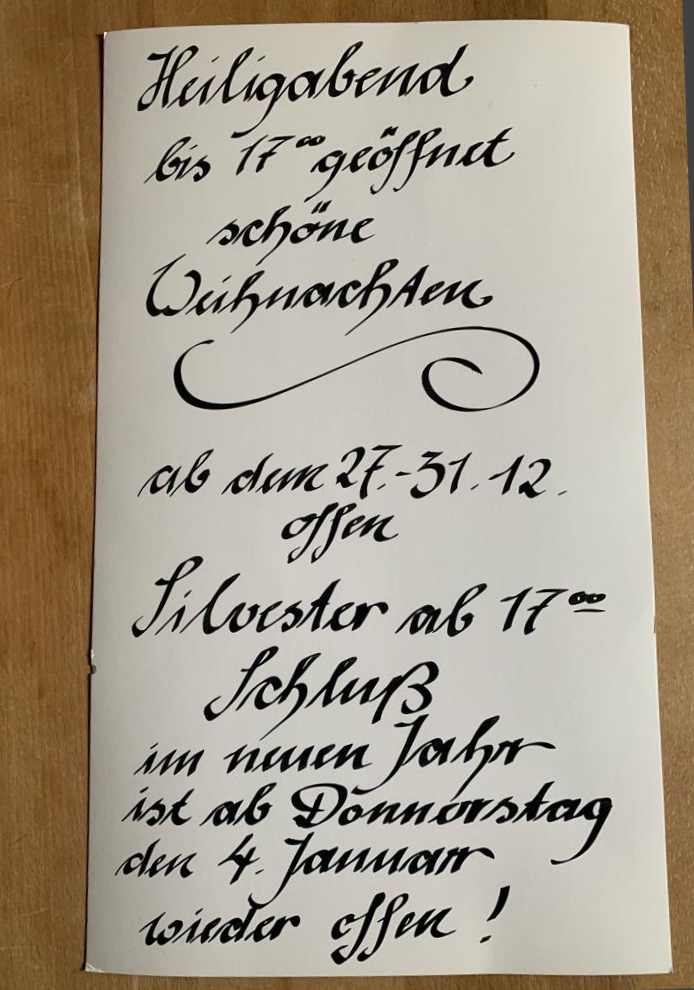 Heiligabend
bis 17⁰⁰ geöffnet
schöne
Weihnachten
ab dem 27.-31.12.
offen
Silvester ab 17⁰⁰
Schluß
im neuen Jahr
ist ab Donnorstag
den 4. Januar
wieder offen!